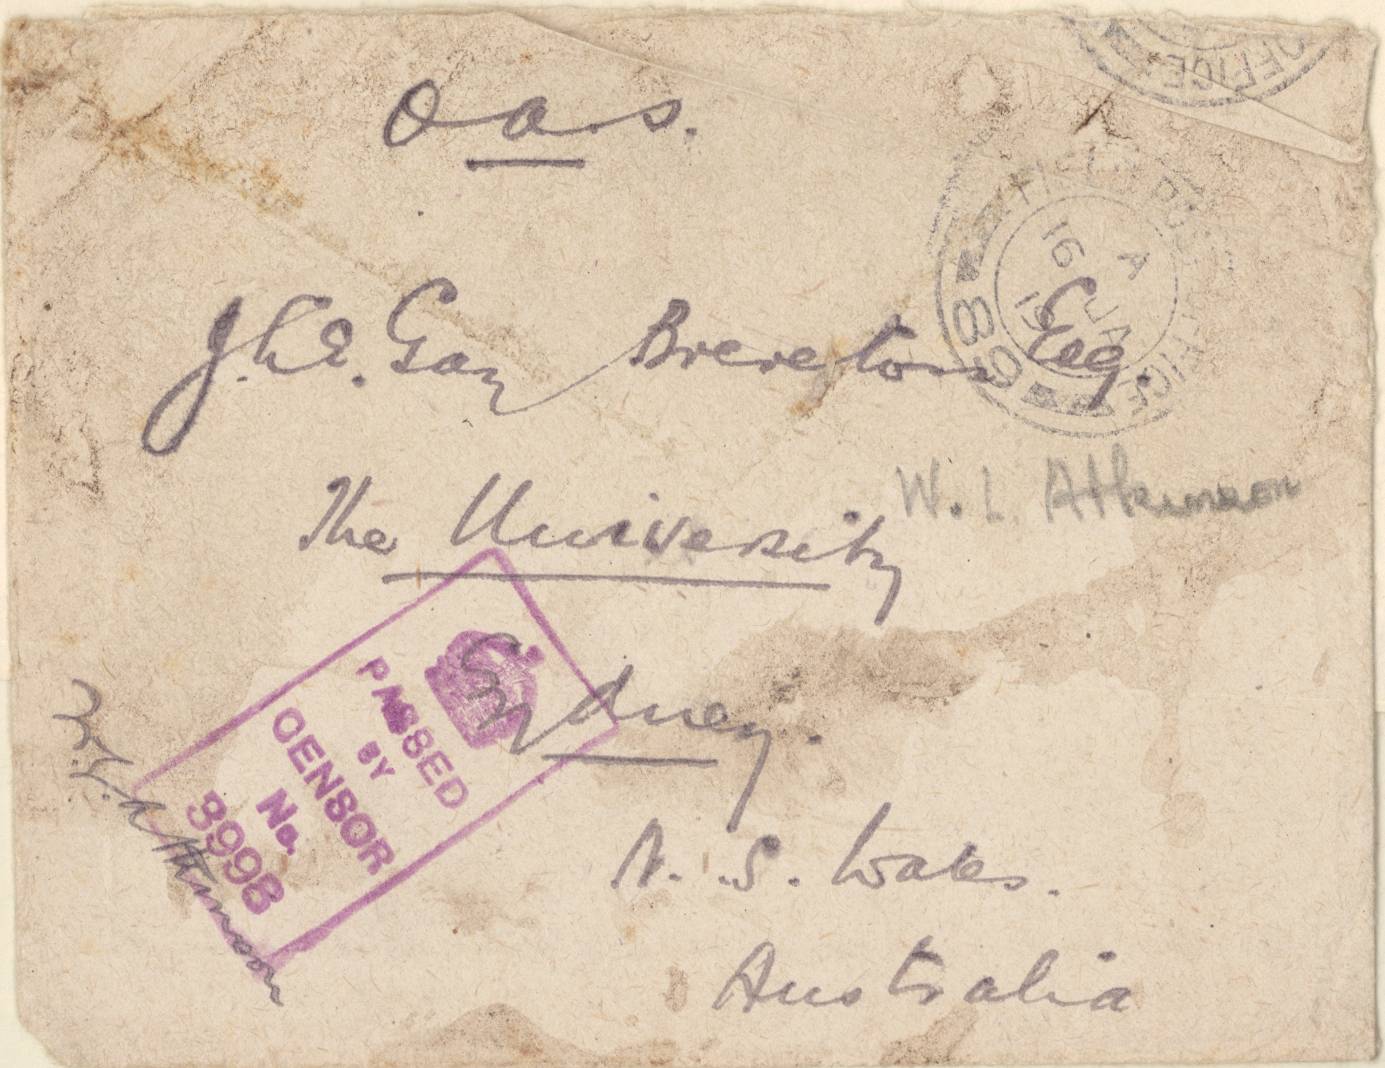 OFFICE
O a. s.
FIELD POST OFFICE
A
16 JA
19
89
J. Le. Gay Brereton Esq.
W. L. Atkinson
The University
Sydney.
PASSED
BY
CENSOR
No.
3998
W. L. Atkinson
N. S. Wales.
Australia